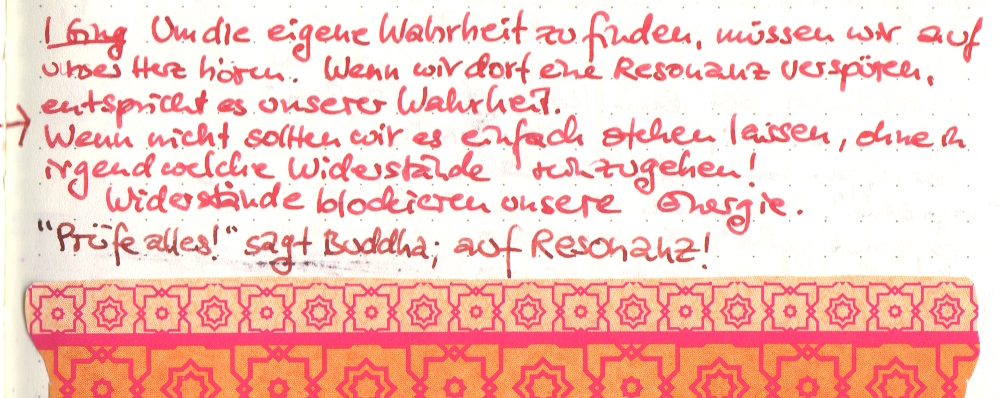 I Ging Um die eigene Wahrheit zu finden, müssen wir auf
unser Herz hören. Wenn wir dort eine Resonanz verspüren,
entspricht es unserer Wahrheit.
Wenn nicht sollten wir es einfach stehen lassen, ohne in
irgendwelche Widerstände reinzugehen!
Widerstände blockieren unsere Energie.
"Prüfe alles!" sagt Buddha; auf Resonanz!